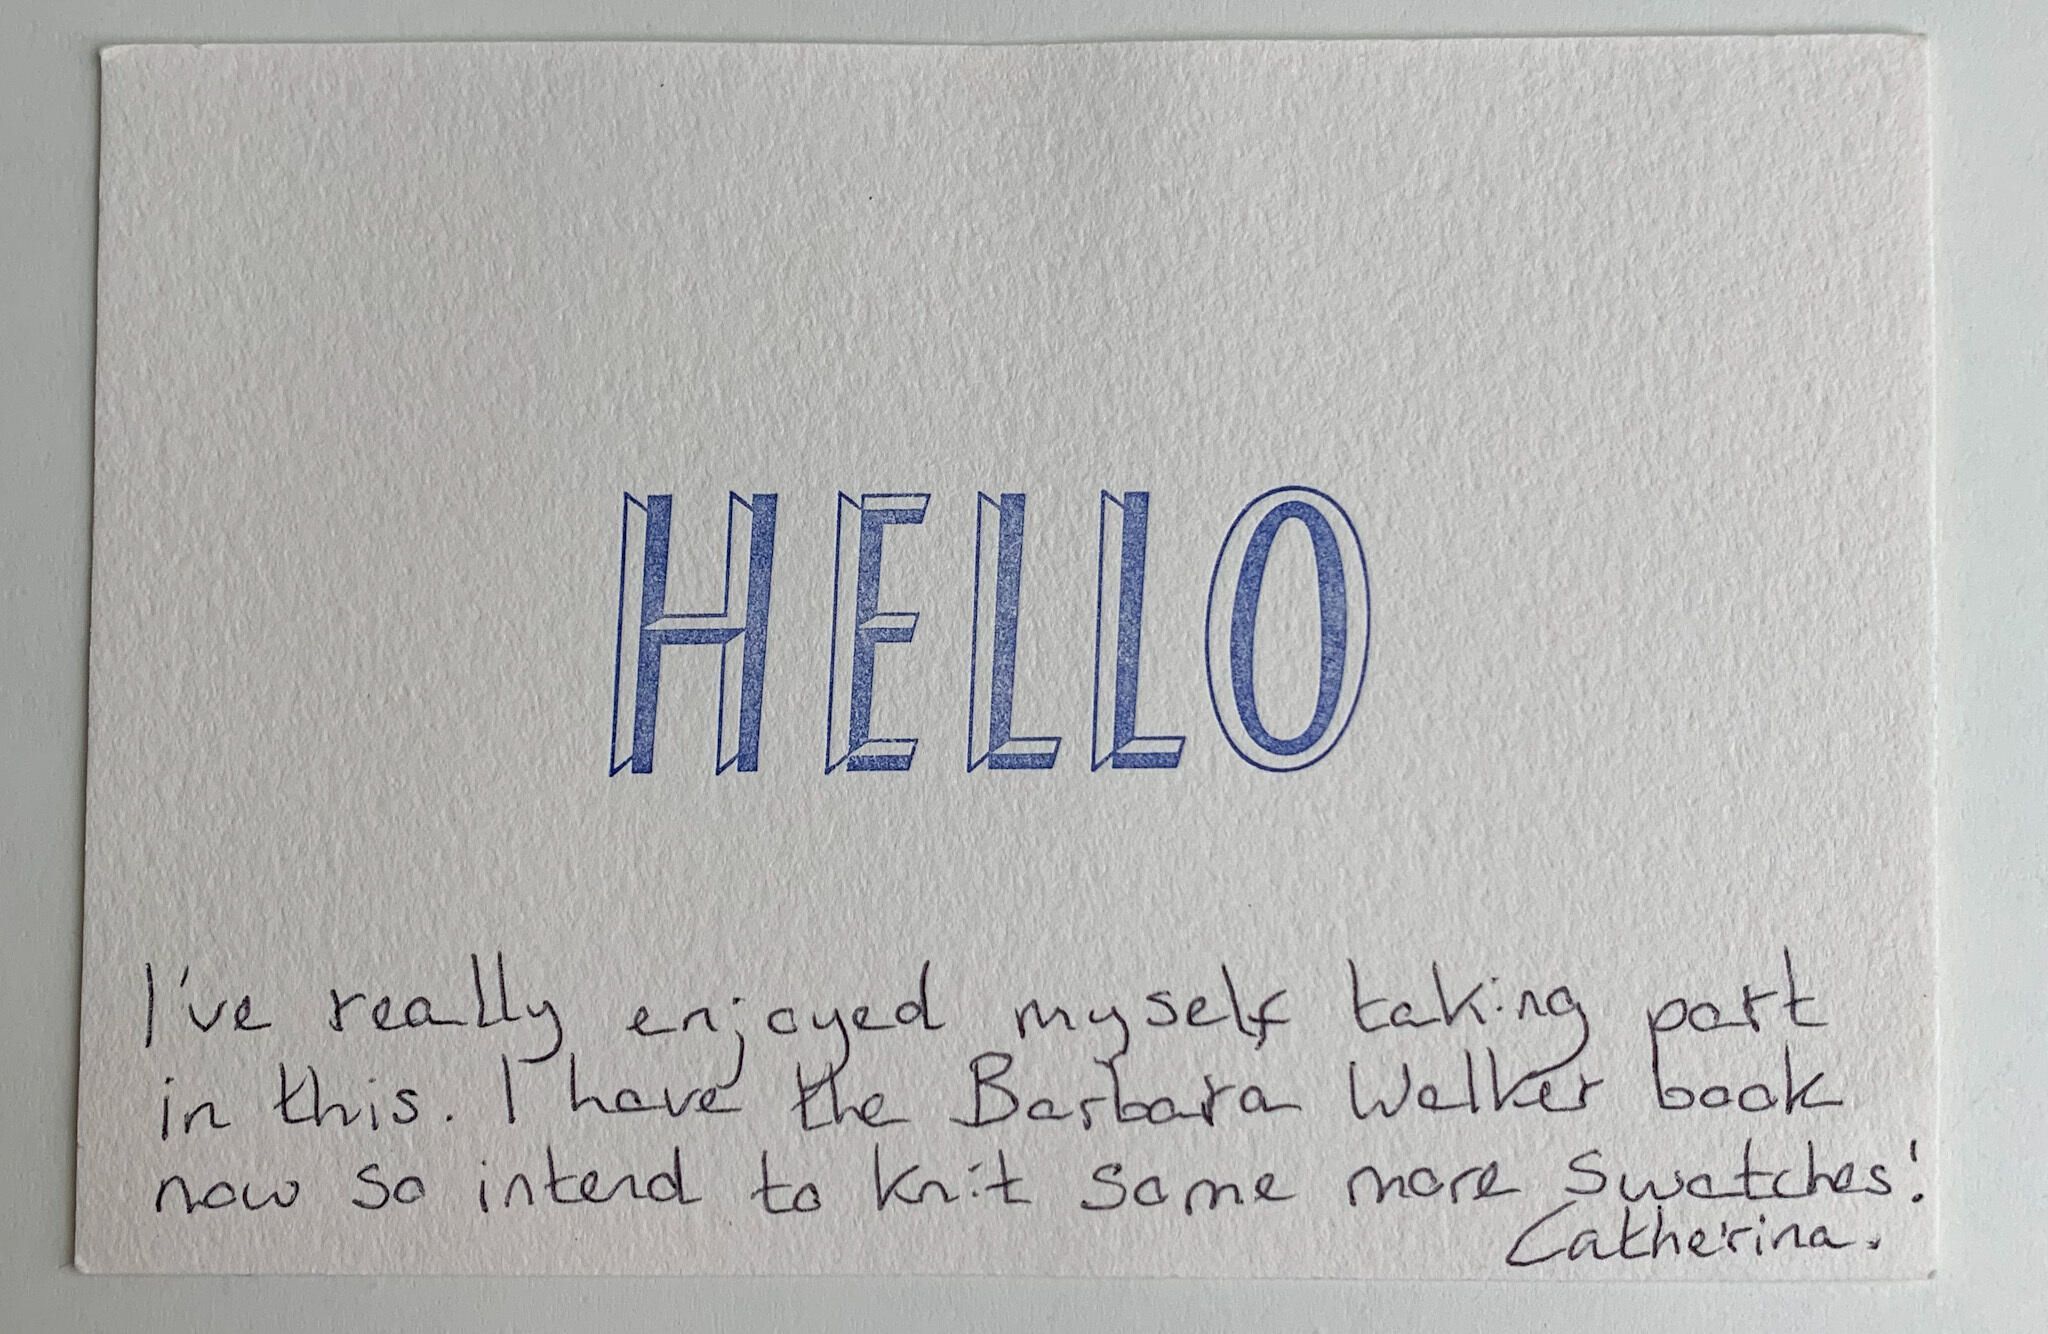 HELLO
I've really enjoyed myself taking part
in this. I have the Barbara Walker book
now so intend to knit some more swatches!
Catherina.